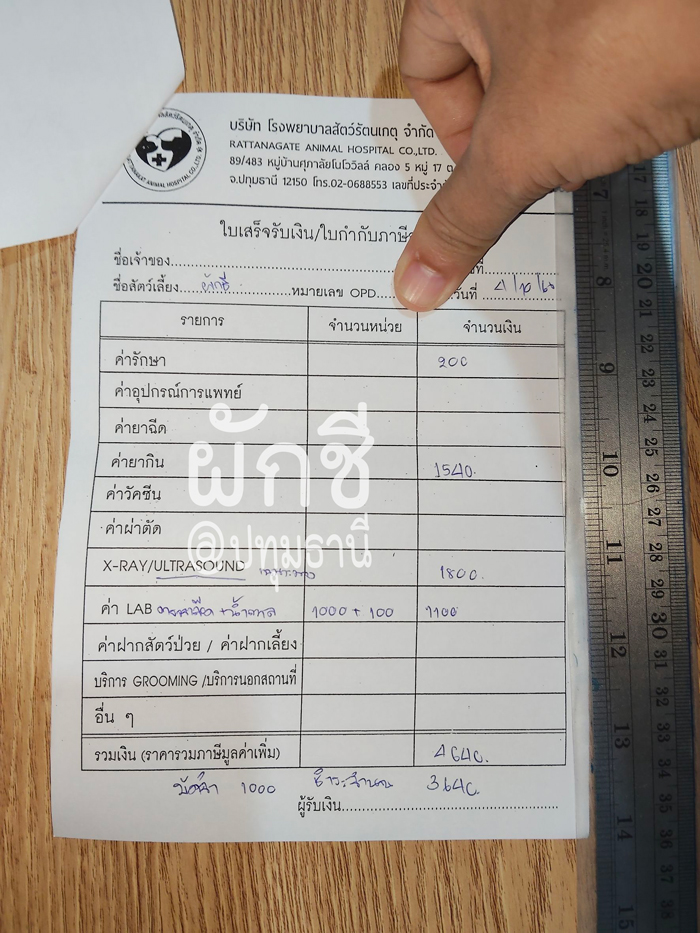 บริษัท โรงพยาบาลสัตว์รัตนเกตุ จำกัด
RATTANAGATE ANIMAL HOSPITAL CO.,LTD.
89/483 หมู่บ้านศุภาลัยโนโววิลล์ คลอง 5 หมู่ 17 ต
จ.ปทุมธานี 12150 โทร.02-0688553 เลขที่ประจำ
ใบเสร็จรับเงิน/ใบกำกับภาษี
ชื่อเจ้าของ
ชื่อสัตว์เลี้ยง ผักชี หมายเลข OPD วันที่
รายการ จำนวนหน่วย จำนวนเงิน
ค่ารักษา 200
ค่าอุปกรณ์การแพทย์
ค่ายาฉีด
ค่ายากิน 1540.
ค่าวัคซีน
ค่าผ่าตัด
X-RAY/ULTRASOUND 1800.
ค่า LAB ตรวจเลือด + น้ำตาล 1000 + 100 1100
ค่าฝากสัตว์ป่วย / ค่าฝากเลี้ยง
บริการ GROOMING /บริการนอกสถานที่
อื่น ๆ
รวมเงิน (ราคารวมภาษีมูลค่าเพิ่ม) 4640.
มัดจำ 1000 3640.
ผู้รับเงิน
ผักชี
@ปทุมธานี